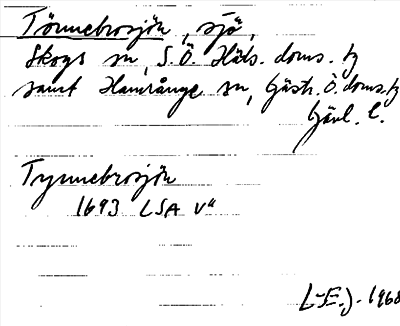 Tönnebrosjön, sjö,
Skogs sn, S.Ö. Häls. doms. tg
samt Hamrånge sn, Gästr. Ö. doms. tg
Gävl. l.
Tynnebrosjön
1693 LSA v4
L-E.J. 1968